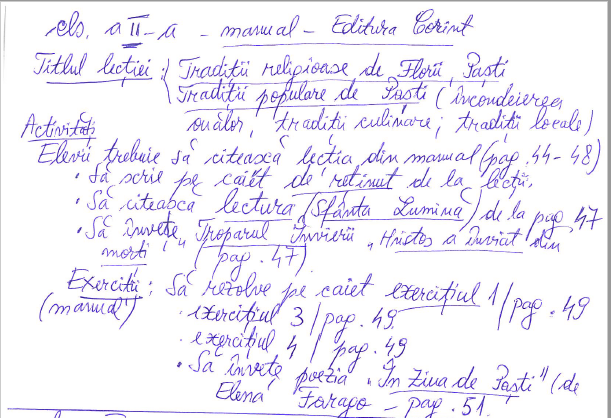 cls. a II-a - manual - Editura Corint
Titlul lecției: { Tradiții religioase de Florii, Paști
Tradiții populare de Paști (încondeierea
ouălor, tradiții culinare; tradiții locale)
Activități
Elevii trebuie să citească lecția din manual (pag. 44-48)
• Să scrie pe caiet de reținut de la lecții.
• Să citească lectura (Sfânta Lumină) de la pag 47
• Să învețe „Troparul Învierii „Hristos a înviat din
morți" (pag. 47).
Exerciții: Să rezolve pe caiet exercițiul 1/pag. 49
(manual) • exercițiul 3/pag. 49.
• exercițiul 4/ pag. 49
• Să învețe poezia „În Ziua de Paști" (de
Elena Farago - pag. 51.